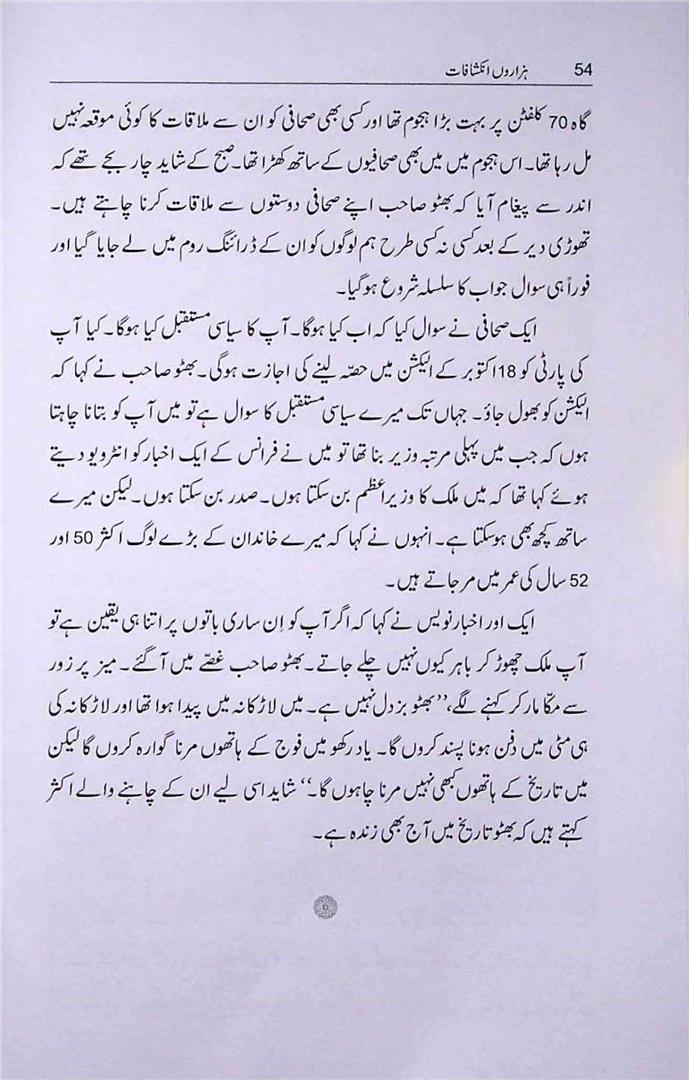 54 ہزاروں انکشافات
گاہ 70 کلفٹن پر بہت بڑا ہجوم تھا اور کسی بھی صحافی کو ان سے ملاقات کا کوئی موقعہ نہیں
مل رہا تھا۔ اس ہجوم میں میں بھی صحافیوں کے ساتھ کھڑا تھا۔ صبح کے شاید چار بجے تھے کہ
اندر سے پیغام آیا کہ بھٹو صاحب اپنے صحافی دوستوں سے ملاقات کرنا چاہتے ہیں۔
تھوڑی دیر کے بعد کسی نہ کسی طرح ہم لوگوں کو ان کے ڈرائنگ روم میں لے جایا گیا اور
فوراً ہی سوال جواب کا سلسلہ شروع ہوگیا۔
ایک صحافی نے سوال کیا کہ اب کیا ہوگا۔ آپ کا سیاسی مستقبل کیا ہوگا۔ کیا آپ
کی پارٹی کو 18 اکتوبر کے الیکشن میں حصّہ لینے کی اجازت ہوگی۔ بھٹو صاحب نے کہا کہ
الیکشن کو بھول جاؤ۔ جہاں تک میرے سیاسی مستقبل کا سوال ہے تو میں آپ کو بتانا چاہتا
ہوں کہ جب میں پہلی مرتبہ وزیر بنا تھا تو میں نے فرانس کے ایک اخبار کو انٹرویو دیتے
ہوئے کہا تھا کہ میں ملک کا وزیراعظم بن سکتا ہوں۔ صدر بن سکتا ہوں۔ لیکن میرے
ساتھ کچھ بھی ہوسکتا ہے۔ انہوں نے کہا کہ میرے خاندان کے بڑے لوگ اکثر 50 اور
52 سال کی عمر میں مرجاتے ہیں۔
ایک اور اخبار نویس نے کہا کہ اگر آپ کو اِن ساری باتوں پر اتنا ہی یقین ہے تو
آپ ملک چھوڑ کر باہر کیوں نہیں چلے جاتے۔ بھٹو صاحب غصّے میں آگئے۔ میز پر زور
سے مکّا مار کر کہنے لگے، ’’بھٹو بزدل نہیں ہے۔ میں لاڑکانہ میں پیدا ہوا تھا اور لاڑکانہ کی
ہی مٹی میں دفن ہونا پسند کروں گا۔ یاد رکھو میں فوج کے ہاتھوں مرنا گوارہ کروں گا لیکن
میں تاریخ کے ہاتھوں کبھی نہیں مرنا چاہوں گا۔‘‘ شاید اسی لیے ان کے چاہنے والے اکثر
کہتے ہیں کہ بھٹو تاریخ میں آج بھی زندہ ہے۔